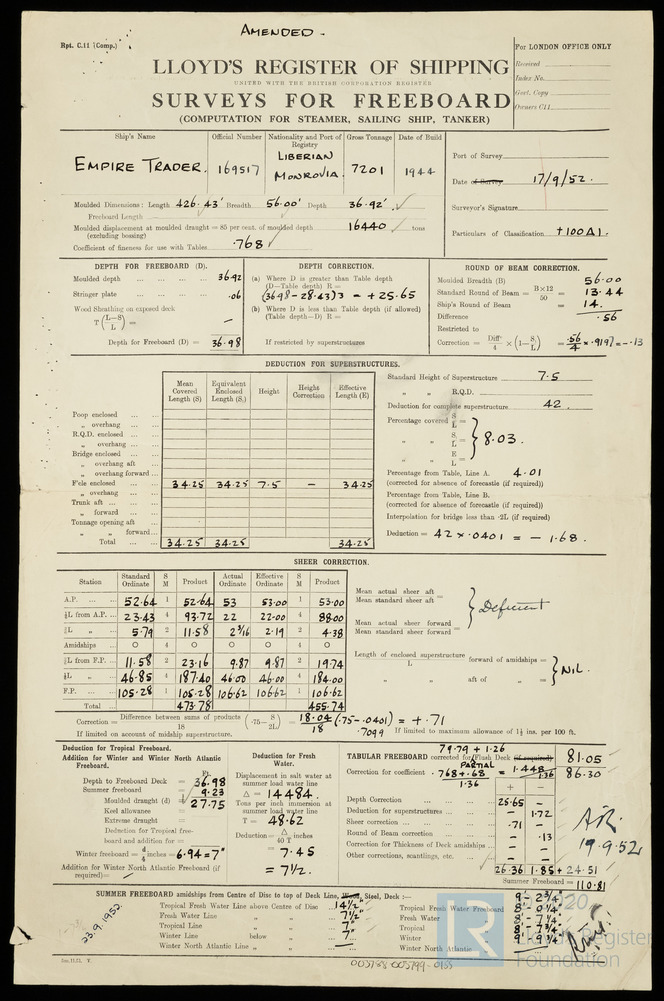 AMENDED -
Rpt. C.11 (Comp.)
For LONDON OFFICE ONLY
Received
Index No.
Govt. Copy
Owners C11.
LLOYD'S REGISTER OF SHIPPING
UNITED WITH THE BRITISH CORPORATION REGISTER
SURVEYS FOR FREEBOARD
(COMPUTATION FOR STEAMER, SAILING SHIP, TANKER)
Ship's Name Official Number Nationality and Port of Registry Gross Tonnage Date of Build
EMPIRE TRADER. 169517 LIBERIAN MONROVIA 7201 1944
Port of Survey
Date of Survey 17/9/52.
Surveyor's Signature
Particulars of Classification +100A1.
Moulded Dimensions: Length 426.43' Breadth 56.00' Depth 36.92'
Freeboard Length
Moulded displacement at moulded draught = 85 per cent. of moulded depth 16440 tons
(excluding bossing)
Coefficient of fineness for use with Tables .768
DEPTH FOR FREEBOARD (D).
Moulded depth 36.92
Stringer plate .06
Wood Sheathing on exposed deck
T (L-S/L) = -
Depth for Freeboard (D) = 36.98
DEPTH CORRECTION.
(a) Where D is greater than Table depth
(D—Table depth) R =
(36.98 - 28.43) 3 = + 25.65
(b) Where D is less than Table depth (if allowed)
(Table depth—D) R =
If restricted by superstructures
ROUND OF BEAM CORRECTION.
Moulded Breadth (B) 56.00
Standard Round of Beam = B×12/50 = 13.44
Ship's Round of Beam = 14.
Difference .56
Restricted to
Correction = Diff/4 × (1-S/L) = .56/4 × .9197 = -.13
DEDUCTION FOR SUPERSTRUCTURES.
Mean Covered Length (S) Equivalent Enclosed Length (S₁) Height Height Correction Effective Length (E)
Poop enclosed
„ overhang
R.Q.D. enclosed
„ overhang
Bridge enclosed
„ overhang aft
„ overhang forward
F'cle enclosed 34.25 34.25 7.5 - 34.25
„ overhang
Trunk aft
„ forward
Tonnage opening aft
„ „ forward
Total 34.25 34.25 34.25
Standard Height of Superstructure 7.5
„ „ R.Q.D.
Deduction for complete superstructure 42.
Percentage covered S/L =
„ „ S₁/L = } 8.03.
„ „ E/L =
Percentage from Table, Line A. 4.01
(corrected for absence of forecastle (if required))
Percentage from Table, Line B.
(corrected for absence of forecastle (if required))
Interpolation for bridge less than ·2L (if required)
Deduction = 42 × .0401 = - 1.68.
SHEER CORRECTION.
Station Standard Ordinate S M Product Actual Ordinate Effective Ordinate S M Product
A.P. 52.64 1 52.64 53 53.00 1 53.00
⅙L from A.P. 23.43 4 93.72 22 22.00 4 88.00
⅓L „ 5.79 2 11.58 2 3/16 2.19 2 4.38
Amidships 0 4 0 0 0 4 0
⅓L from F.P. 11.58 2 23.16 9.87 9.87 2 19.74
⅙L „ 46.85 4 187.40 46.00 46.00 4 184.00
F.P. 105.28 1 105.28 106.62 106.62 1 106.62
Total 473.78 455.74
Mean actual sheer aft
Mean standard sheer aft =
Mean actual sheer forward
Mean standard sheer forward =
} Deficient
Length of enclosed superstructure forward of amidships =
L
„ „ aft of „ =
} NIL.
Correction = Difference between sums of products / 18 (·75 — S/2L) = 18.04/18 (.75 - .0401) = + .71
.7099
If limited on account of midship superstructure.
If limited to maximum allowance of 1½ ins. per 100 ft.
Deduction for Tropical Freeboard.
Addition for Winter and Winter North Atlantic Freeboard.
Ft.
Depth to Freeboard Deck = 36.98
Summer freeboard = 9.23
Moulded draught (d) = 27.75
Keel allowance
Extreme draught =
Deduction for Tropical freeboard and addition for
Winter freeboard = d/4 inches = 6.94 = 7"
Addition for Winter North Atlantic Freeboard (if required) =
Deduction for Fresh Water.
Displacement in salt water at summer load water line
Δ = 14484.
Tons per inch immersion at summer load water line
T = 48.62
Deduction = Δ/40 T inches
= 7.45
= 7½.
79.79 + 1.26
TABULAR FREEBOARD corrected for Flush Deck (if required) 81.05
PARTIAL
Correction for coefficient .768 + .68 / 1.36 = 1.448 / 1.36 86.30
+ -
Depth Correction 25.65 -
Deduction for superstructures - 1.72
Sheer correction .71 -
Round of Beam correction - .13
Correction for Thickness of Deck amidships - -
Other corrections, scantlings, etc. - -
26.36 1.85 + 24.51
Summer Freeboard = 110.81
19.9.52
SUMMER FREEBOARD amidships from Centre of Disc to top of Deck Line, Wood, Steel, Deck :— 9' - 2¾"
Tropical Fresh Water Line above Centre of Disc 14½" Tropical Fresh Water Freeboard 8' - 0¼"
Fresh Water Line „ „ 7½" Fresh Water „ 8' - 7¼"
Tropical Line „ „ 7" Tropical „ 8' - 7¾"
Winter Line below „ 7" Winter „ 9' - 9¾"
Winter North Atlantic Line „ „ Winter North Atlantic „
23.9.1952.
LR
2020
Lloyd's Register
Foundation
003788-003799-0155